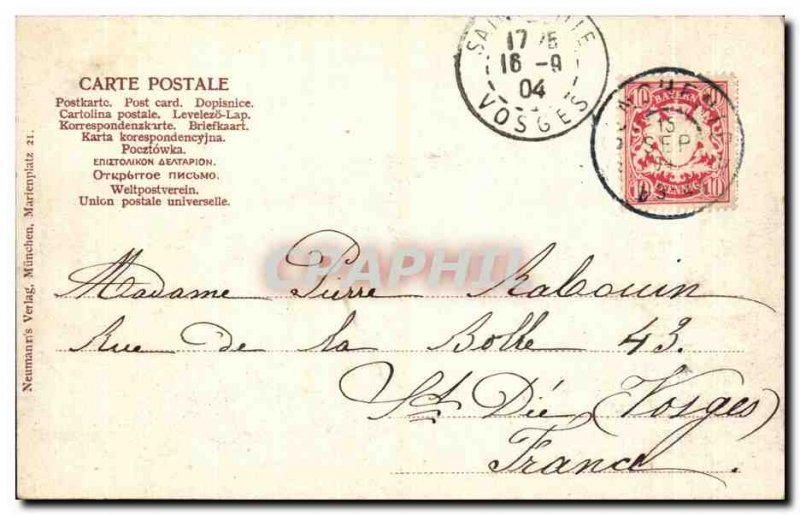 CARTE POSTALE
Postkarte. Post card. Dopisnice.
Cartolina postale. Levelező-Lap.
Korrespondenzkarte. Briefkaart.
Karta korespondencyjna.
Pocztówka.
ΕΠΙΣΤΟΛΙΚΟΝ ΔΕΛΤΑΡΙΟΝ.
Открытое письмо.
Weltpostverein.
Union postale universelle.
17
16 -9
04
VOSGES
10 BAYERN 10
15
SEP
10 PFENNIG 10
CPAPHIL
Madame Pierre Rabouin
Rue de la Bolle 43.
St Dié (Vosges)
France.
Neumann's Verlag, München, Marienplatz 21.